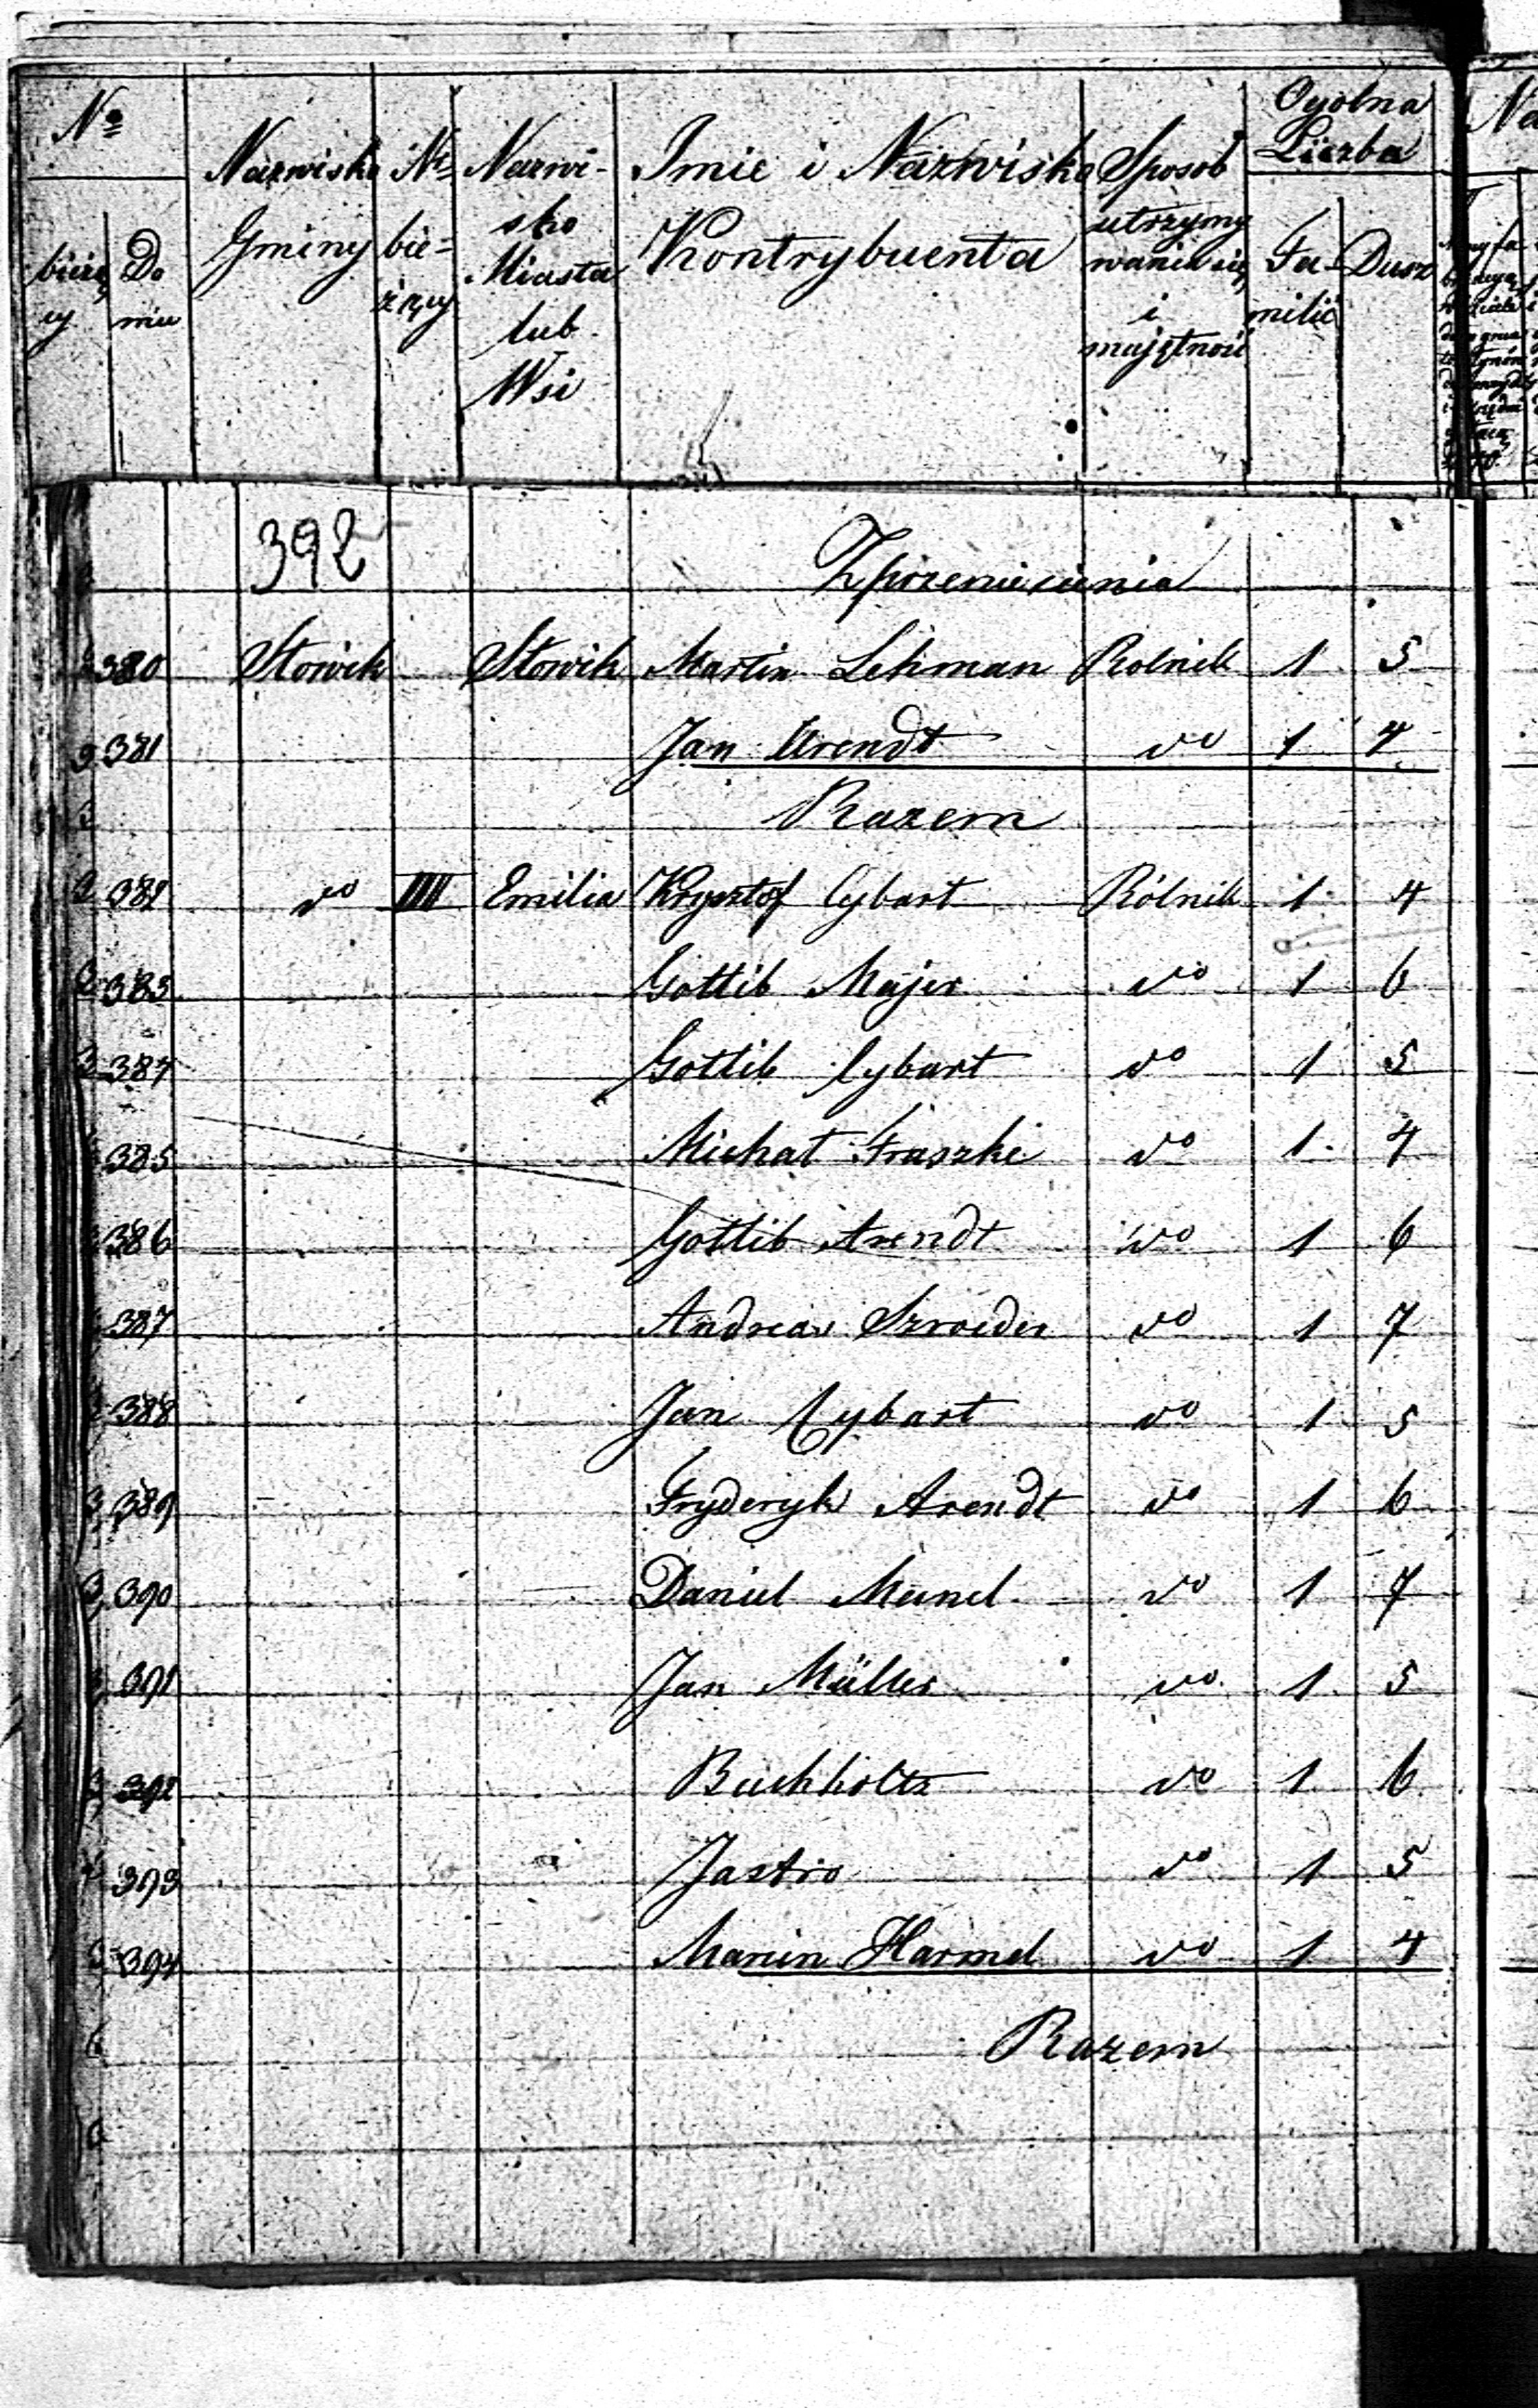 No
bieżący
Domu
Nazwisko Gminy
No bieżący
Nazwisko Miasta lub Wsi
Imie i Nazwisko Kontrybuenta
Sposob utrzymywania się i majętność
Ogolna Liczba
Familii
Dusz
392
Z przeniesienia
380 Słowik Słowik Martin Lehman Rolnik 1 5
381 Jan Arendt do 1 4
Razem
382 do IIII Emilia Krysztof Cybart Rólnik 1 4
383 Gottlib Majer do 1 6
384 Gottlib Cybart do 1 5
385 Michał Fraszke do 1 4
386 Gottlib Arendt do 1 6
387 Andreas Szroeder do 1 7
388 Jan Cybart do 1 5
389 Fryderyk Arendt do 1 6
390 Daniel do 1 7
391 Jan Müller do 1 5
392 Buchholtz do 1 6
393 Jastro do 1 5
394 Harmel do 1 4
Razem